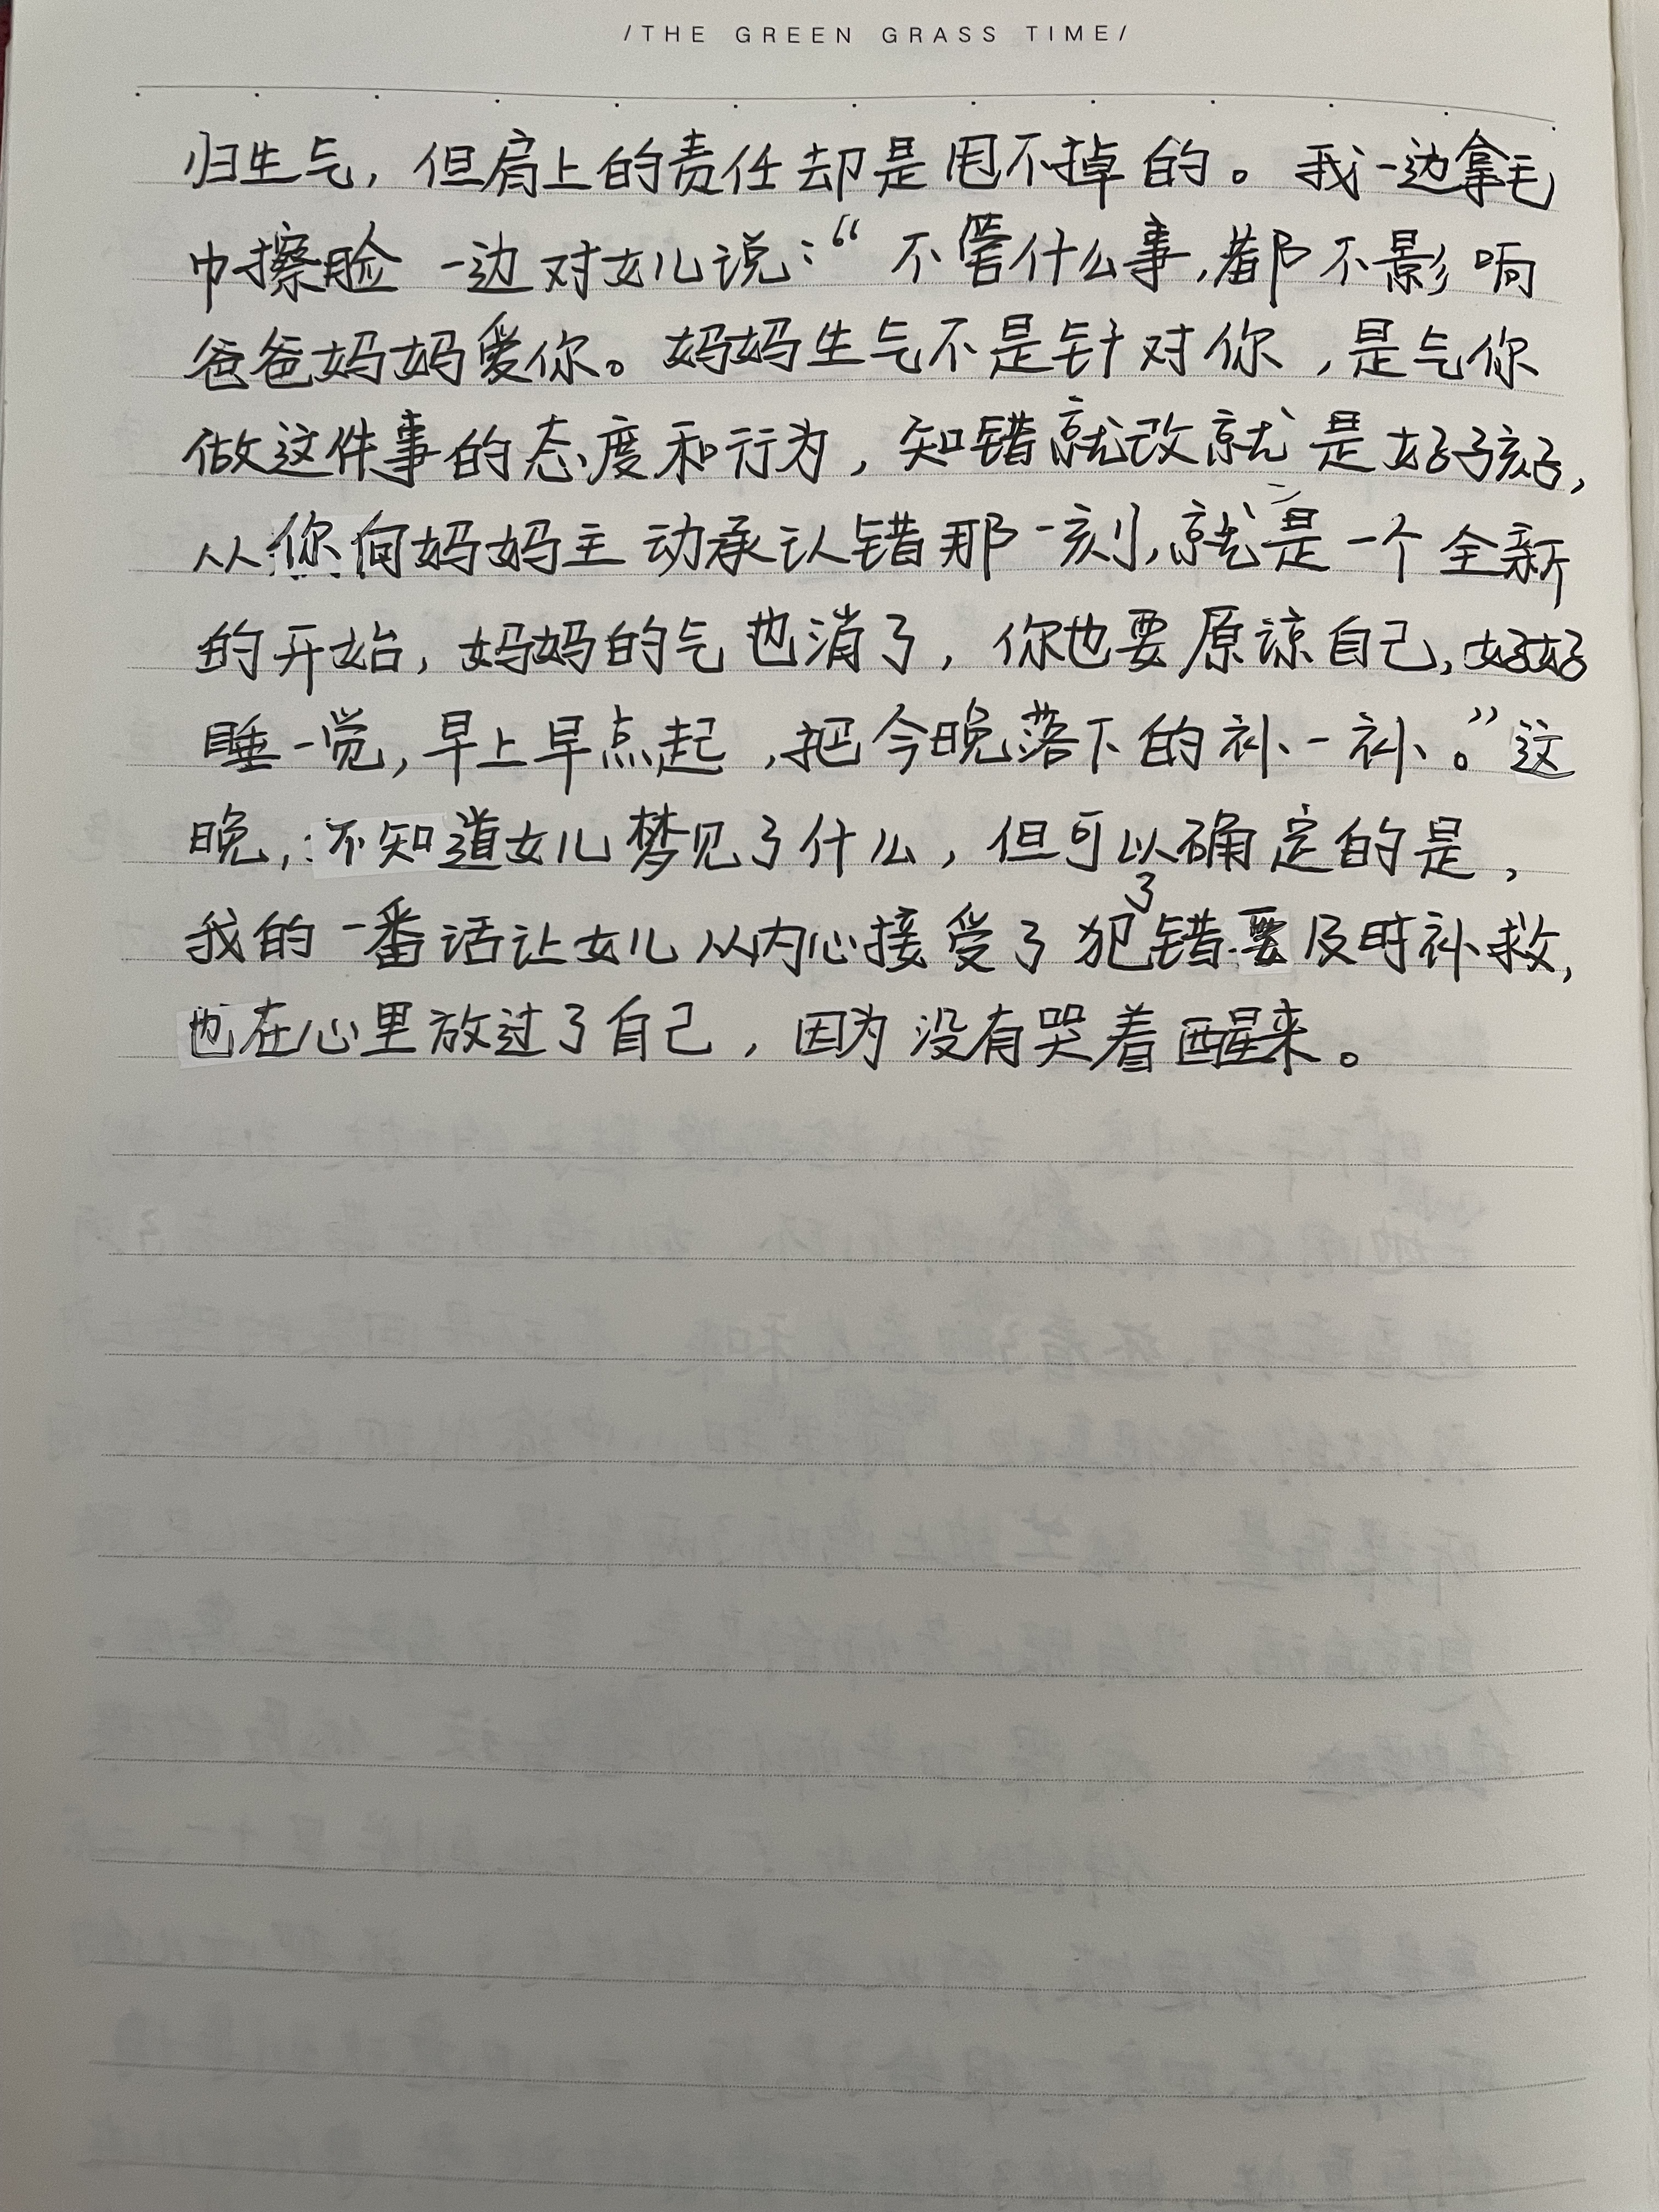 /THE GREEN GRASS TIME/
归生气，但肩上的责任却是甩不掉的。我一边拿毛
巾擦脸一边对女儿说：“不管什么事，都不影响
爸爸妈妈爱你。妈妈生气不是针对你，是气你
做这件事的态度和行为，知错就改就是好孩子，
从你向妈妈主动承认错那一刻，就是一个全新
的开始，妈妈的气也消了，你也要原谅自己，好好
睡一觉，早上早点起，把今晚落下的补一补。”这
晚，不知道女儿梦见了什么，但可以确定的是，
我的一番话让女儿从内心接受了犯了错要及时补救，
也在心里放过了自己，因为没有哭着醒来。